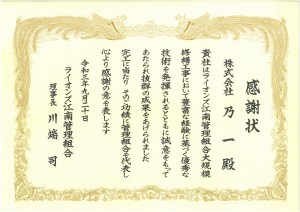 感謝状
株式会社 乃一 殿
貴社はライオンズ江南管理組合大規模
修繕工事において豊富な経験に基づく優秀な
技術を発揮されるとともに誠意をもって
あたられ抜群の成果をあげられました
完工に当たり その功績に管理組合を代表し
心より感謝の意を表します
令和三年九月二十日
ライオンズ江南管理組合
理事長 川端 司